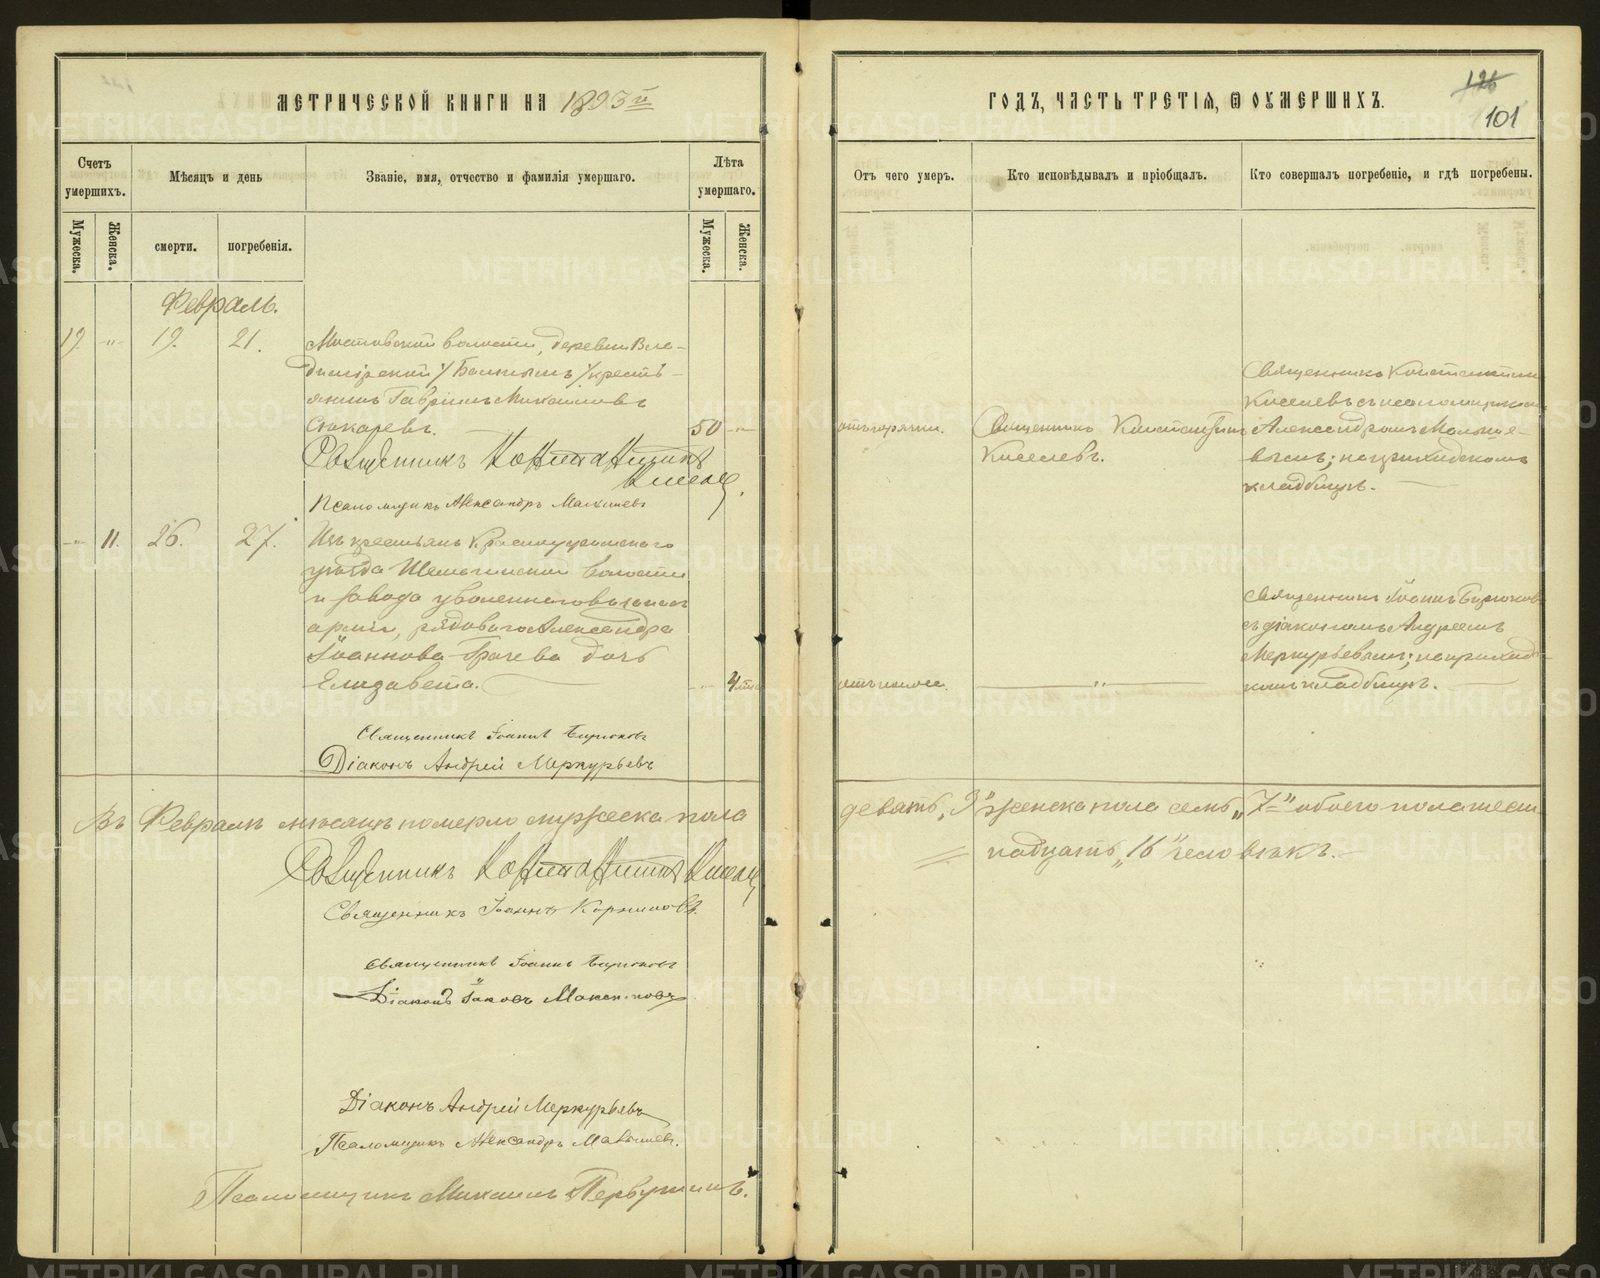 МЕТРИЧЕСКОЙ КНИГИ НА 1893й
ГОДЪ, ЧАСТЬ ТРЕТІЯ, Ѿ ОУМЕРШИХЪ.
126
101
Счетъ умершихъ.
Мѣсяцъ и день
Званіе, имя, отчество и фамилія умершаго.
Лѣта умершаго.
Отъ чего умеръ.
Кто исповѣдывалъ и пріобщалъ.
Кто совершалъ погребеніе, и гдѣ погребены.
Мужеска.
Женска.
смерти.
погребенія.
Мужеска.
Женска.
Февраль.
19. -"- 19. 21.
Мостовской волости, деревни Вла-
димірской крестъ-
янинъ Гавріилъ Михаиловъ
Сюкаревъ. 50 -"-
Священникъ Константинъ
Киселевъ.
Псаломщикъ Александръ
отъ горячки.
Священникъ Константинъ
Киселевъ.
Священникъ Константинъ
Киселевъ съ псаломщикомъ
Александромъ
на приходскомъ
кладбищѣ.
-"- 11. 26. 27.
Изъ крестьянъ Красноуфимскаго
уѣзда Шемахинской волости
и завода уволеннаго въ запасъ
арміи, рядоваго Александра
Іоаннова Грачева дочь
Елизавета. -"-
Священникъ Іоаннъ Бирюковъ
Діаконъ Андрей Меркурьевъ
отъ поноса.
"
Священникъ Іоаннъ Бирюковъ
съ діакономъ Андреемъ
Меркурьевымъ; на приход-
комъ кладбищѣ.
Въ Февралѣ мѣсяцѣ померло мужеска пола
девять „9" женска пола семь „7" обоего пола шест-
надцать „16" человѣкъ.
Священникъ Константинъ Киселевъ
Священникъ Іоаннъ Корниловъ.
Священникъ Іоаннъ Бирюковъ
Діаконъ Іаковъ Максимовъ
Діаконъ Андрей Меркурьевъ
Псаломщикъ Александръ
Псаломщикъ Михаилъ Первушинъ.
METRIKI.GASO-URAL.RU